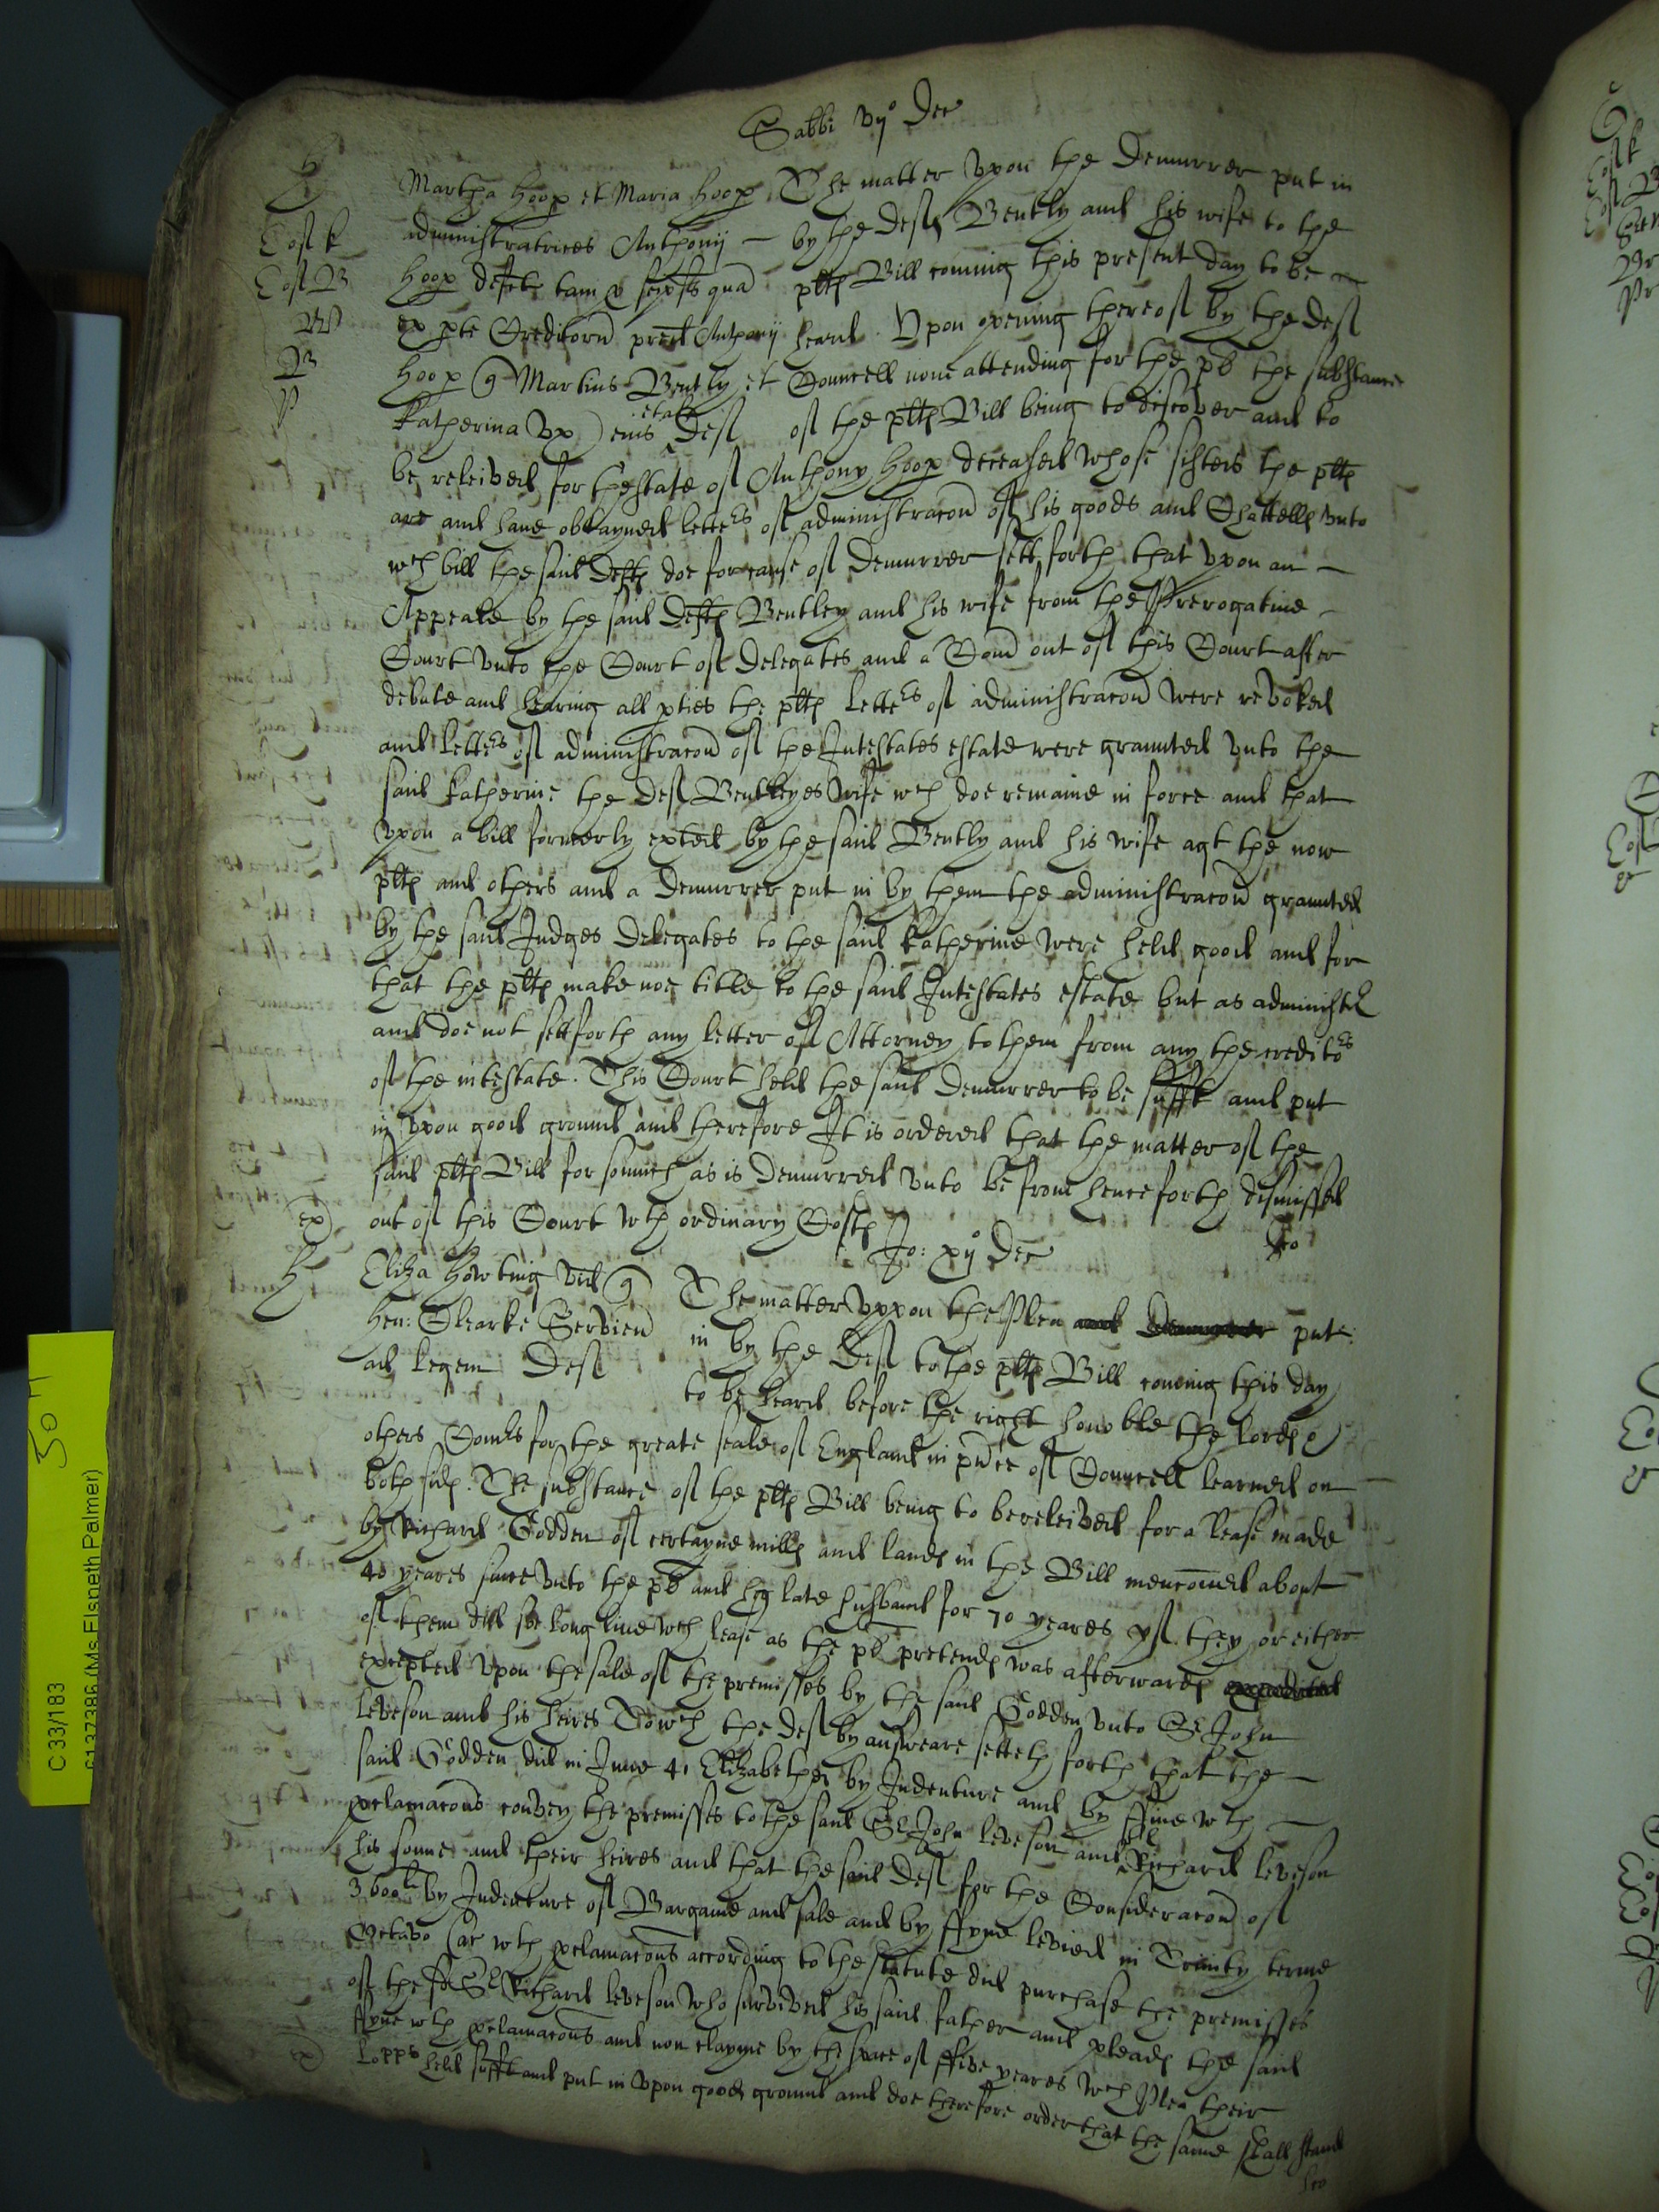 Sabbi vijo Dec
H
Martha Hoop et Maria Hoop The matter vpon the Demurrer put in
Cost k
administratrices Anthonij by the Deft Bently and his wife to the
Cost B
Hoop defcti tam p seipsis qua pltes Bill coming this present day to be
W
ex pte Creditorũ pred Anthonij heard. Vpon opening thereof by the Deft
B
Hoop Martins Bently et Councell none attending for the pl the substance
P
Katherina vx eius et al Deft of the pltes Bill being to discover and to
be releived for thestate of Anthony Hoop deceased whose sisters the pltes
are and haue obtayned lettrs of administracon of his goods and Chattells vnto
wch bill the said Deftes doe for cause of Demurrer sett forth that vpon an
Appeale by the said Deftes Bentley and his wife from the Prerogatiue
Court vnto the Court of Delegates and a Com out of this Court after
debate and hearing all pties the pltes Lettrs of administracon were revoked
and lettrs of administracon of the Intestates estate were graunted vnto the
said Katherine the Deft Bentleyes wife wch doe remaine in force and that
vpon a bill formerly exted by the said Bently and his wife agt the now
pltes and others and a Demurrer put in by them the administracon graunted
by the said Judges Delegates to the said Katherine were held good and for
that the pltes make noe title to the said Intestates estate but as administrs
and doe not sett forth any letter of Attorney to them from any the creditors
of the intestate. This Court held the said Demurrer to be sufft and put
in vpon good ground and therefore It is ordered that the matter of the
said pltes Bill for somuch as is Demurred vnto be from henceforth dismissed
ex out of this Court wth ordinary Costes
Jo: xijo Dec
H
Eliza Howting vid The matter vppon the Plea and Demurrer put
Hen: Clearke Servien in by the Deft to the pltes Bill coming this day
ad legem Deft to be heard before the right honoble the lordes
others Comrs for the greate seale of England in pnce of Councell learned on
both sides. The substance of the pltes Bill being to be releived for a lease made
by Richard Godden of certayne mills and landes in the Bill mencõned about
40 yeares since vnto the pl and hir late husband for 70 yeares yf they or either
of them did soe long liue wch lease as the pl pretendes was afterwardes
excepted vpon the sale of the premisses by the said Godden vnto Sr John
Leveson and his heires To wch the Deft by answeare setteth forth that the
said Godden did in June 41 Elizabethe by Indenture and by ffine wth
pclamacons convey the premisses to the said Sr John Leveson and Sr Richard Leveson
his sonne and their heires and that the said Deft for the Consideracon of
3600li by Indenture of Bargaine and sale and by ffyne levied in Trinity terme
Octavo Car wth pclamacons according to the statute did purchase the premisses
of the sd Sr Richard Leveson who survived his said father and pleades the said
ffyne wth pclamacons and non clayme by the space of ffive yeares wch Plea their
Lopps held sufft and put in vpon good ground and doe therefore order that the same shall stand
C 33/183
(Ms Elspeth Palmer)